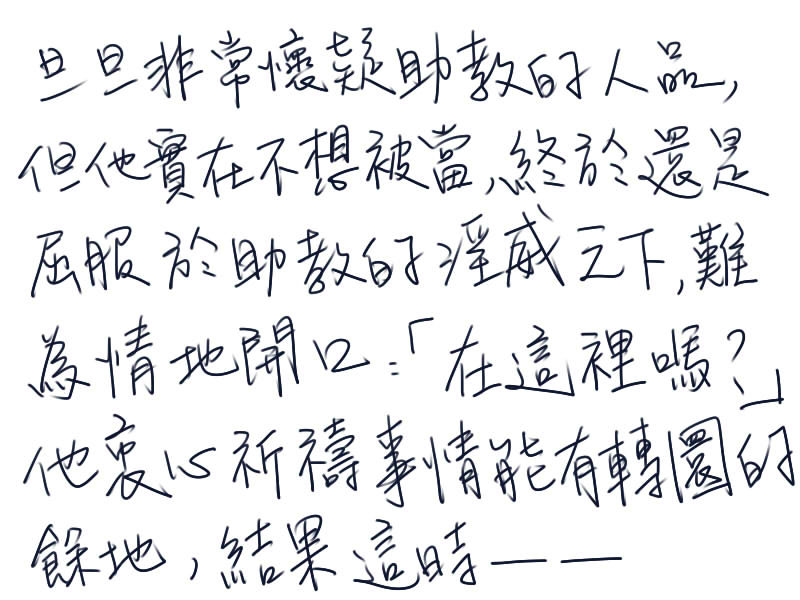 旦旦非常懷疑助教的人品,
但他實在不想被當,終於還是
屈服於助教的淫威之下,難
為情地開口:「在這裡嗎?」
他衷心祈禱事情能有轉圜的
餘地,結果這時——